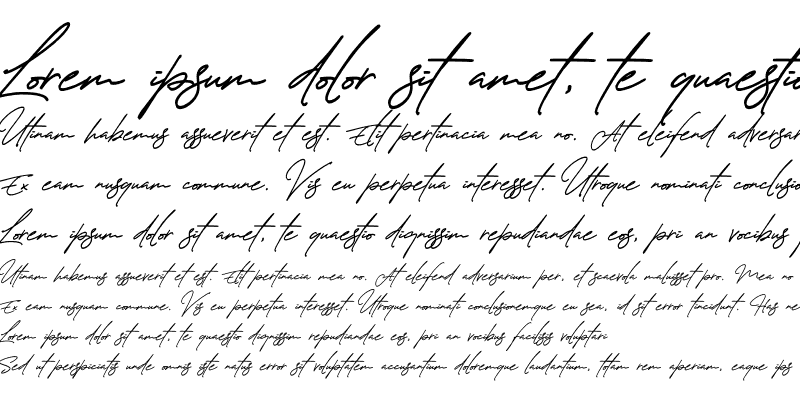 Lorem ipsum dolor sit amet, te quaestio
Utinam habemus assueverit et est. Elit pertinacia mea no. At eleifend adversar
Ex eam nusquam commune. Vis eu perpetua interesset. Utroque nominati conclusio
Lorem ipsum dolor sit amet, te quaestio dignissim repudiandae eos, pri an vocibus
Utinam habemus assueverit et est. Elit pertinacia mea no. At eleifend adversarium per, et scaevola maluisset pro. Mea no
Ex eam nusquam commune. Vis eu perpetua interesset. Utroque nominati conclusionemque eu sea, id sit error tincidunt. Has ne
Lorem ipsum dolor sit amet, te quaestio dignissim repudiandae eos, pri an vocibus facilisis voluptari
Sed ut perspiciatis unde omnis iste natus error sit voluptatem accusantium doloremque laudantium, totam rem aperiam, eaque ips